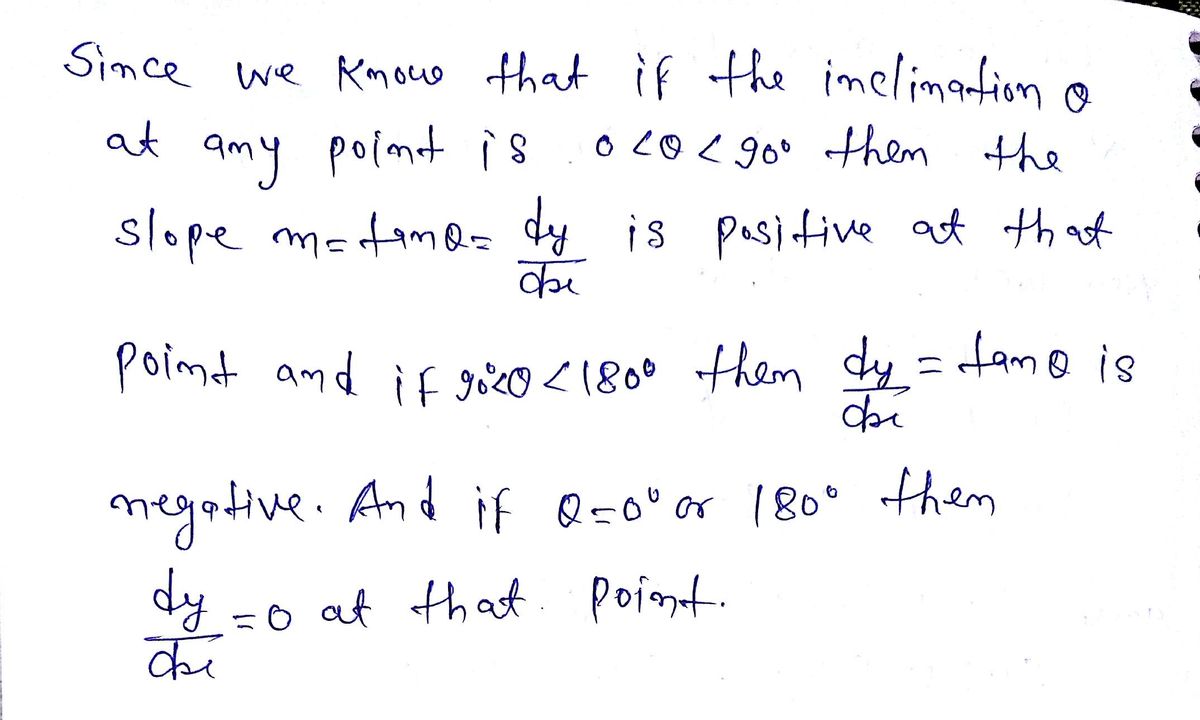 Since we know that if the inclination θ
at any point is 0<θ<90° then the
slope m=tanθ= dy/dx is positive at that
point and if 90°<θ<180° then dy/dx = tanθ is
negative. And if θ=0° or 180° then
dy/dx =0 at that point.